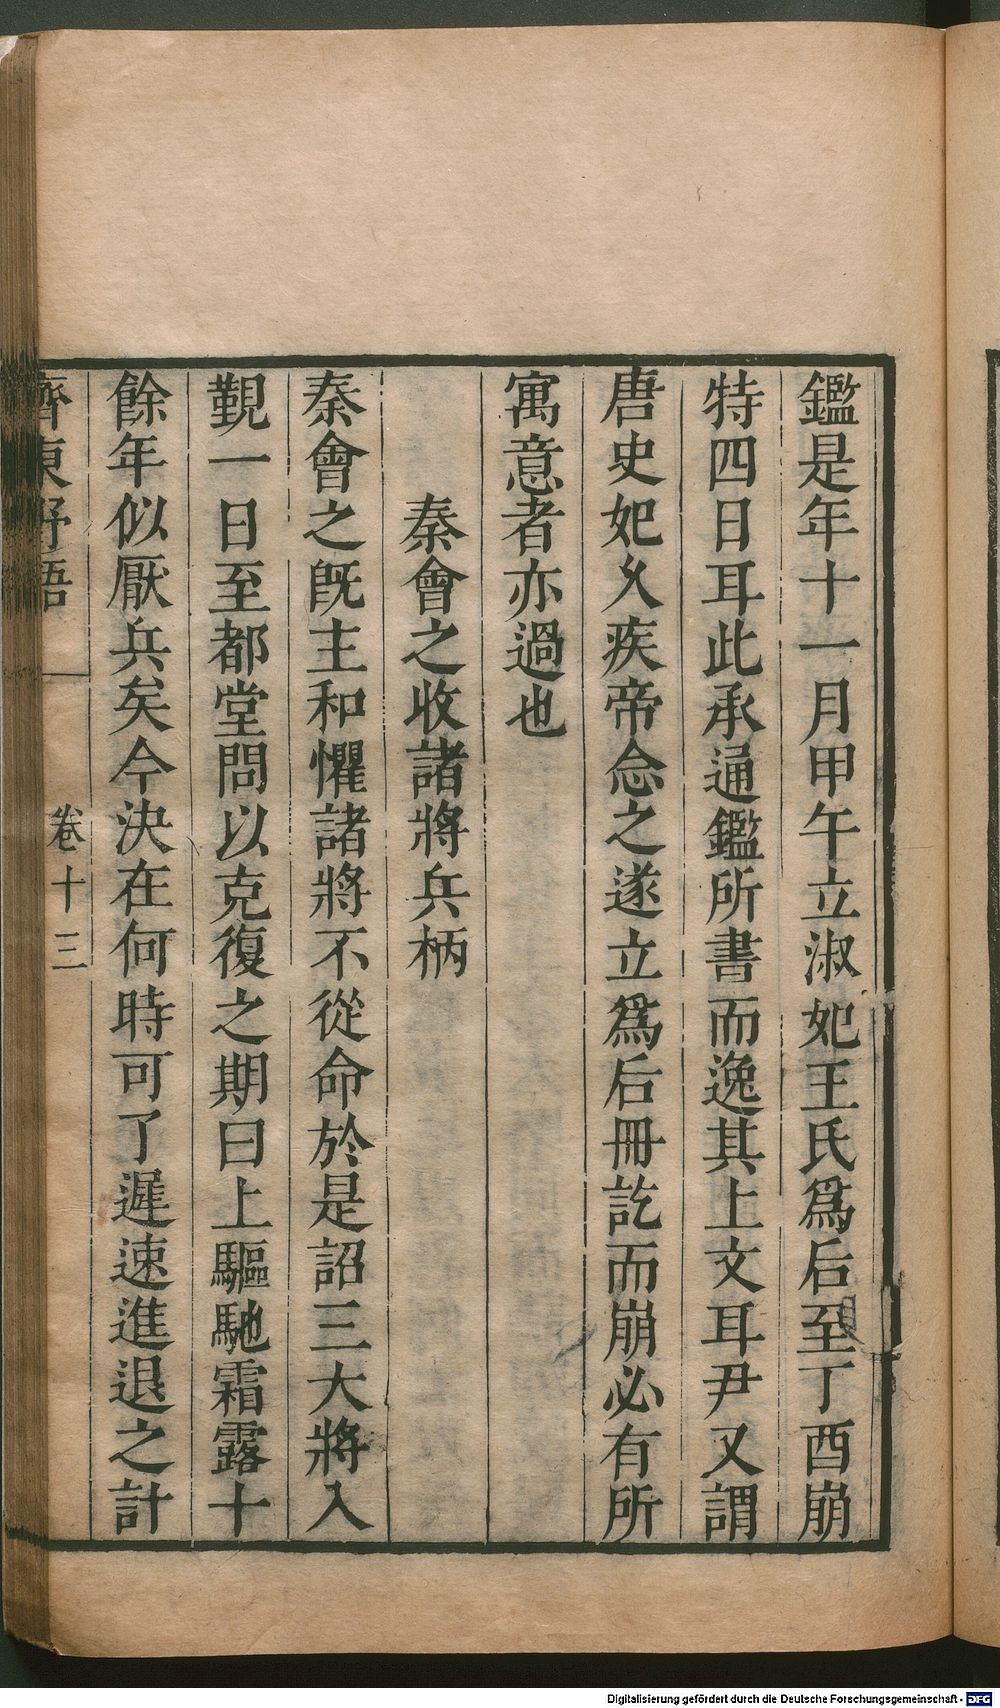 鑑是年十一月甲午立淑妃王氏爲后至丁酉崩
特四日耳此承通鑑所書而逸其上文耳尹又謂
唐史妃久疾帝念之遂立爲后冊訖而崩必有所
寓意者亦過也
秦會之收諸將兵柄
秦會之旣主和懼諸將不從命於是詔三大將入
覲一日至都堂問以克復之期曰上驅馳霜露十
餘年似厭兵矣今決在何時可了遲速進退之計
齊東野語
卷十三
Digitalisierung gefördert durch die Deutsche Forschungsgemeinschaft - DFG